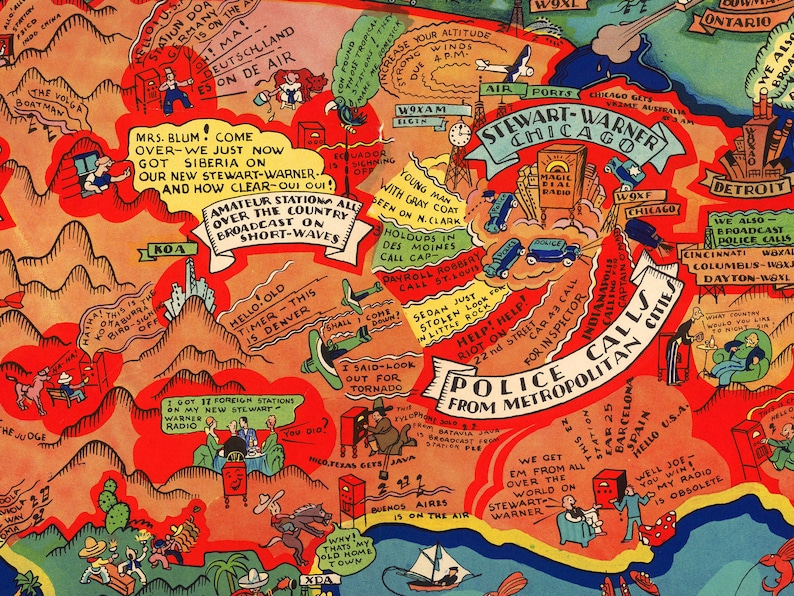 W9XL
BOWMA
ONTARIO
INDO CHINA
HELLO! U.S.
STATION DOA
GERMANY
IS ON THE A
MA!
DEUTSCHLAND
ON DE AIR
INCREASE YOUR ALTITUDE
STRONG WINDS
DUE 4 P.M.
AIR PORTS
CHICAGO GETS
VK2ME AUSTRALIA
AT 3 AM
THE VOLGA
BOATMAN
W9XAM
ELGIN
STEWART-WARNER
CHICAGO
MAGIC
DIAL
RADIO
MRS. BLUM! COME
OVER-WE JUST NOW
GOT SIBERIA ON
OUR NEW STEWART-WARNER-
AND HOW CLEAR-OUI OUI!
ECUADOR
IS SIGNING
OFF
AMATEUR STATIONS ALL
OVER THE COUNTRY
BROADCAST ON
SHORT-WAVES
YOUNG MAN
WITH GRAY COAT
SEEN ON N. CLARK
HOLDUPS IN
DES MOINES
CALL CAP-
PAYROLL ROBBERY
CALL ST. LOUIS
SEDAN JUST
STOLEN LOOK FOR
IN LITTLE ROCK
HELP! HELP!
RIOT ON
22nd STREET
CAR 43 CALL
FOR INSPECTOR
INDIANAPOLIS
CALLING
CAPTAIN
POLICE
POLICE
W9XF
CHICAGO
WXAO
DETROIT
WE ALSO
BROA
WE ALSO-
BROADCAST
POLICE CALLS
CINCINNATI W8XAL
COLUMBUS-W8XJ
DAYTON-W8XL
POLICE CALLS
FROM METROPOLITAN CITIES
KOA
HAHA! THIS IS THE
KOOKABURRA
BIRD-SIGNING
OFF
HELLO! OLD
TIMER-THIS
IS DENVER
SHALL I COME
DOWN?
I SAID-LOOK
OUT FOR
TORNADO
WHAT COUNTRY
WOULD YOU LIKE
TO-NIGHT SIR
HA-HA!
THE JUDGE
I GOT 17 FOREIGN STATIONS
ON MY NEW STEWART-
WARNER RADIO
YOU DID?
HICO, TEXAS GETS JAVA
THIS
XYLOPHONE SOLO
FROM BATAVIA JAVA
IS BROADCAST FROM
STATION PLE
BUENOS AIRES
IS ON THE AIR
STATION
EAR 25
BARCELONA
SPAIN
HELLO U.S.A.
WE GET
EM FROM ALL
OVER THE
WORLD ON
STEWART-
WARNER
WELL JOE-
YOU WIN!
MY RADIO
IS OBSOLETE
WHY!
THATS MY
OLD HOME
TOWN
XDA